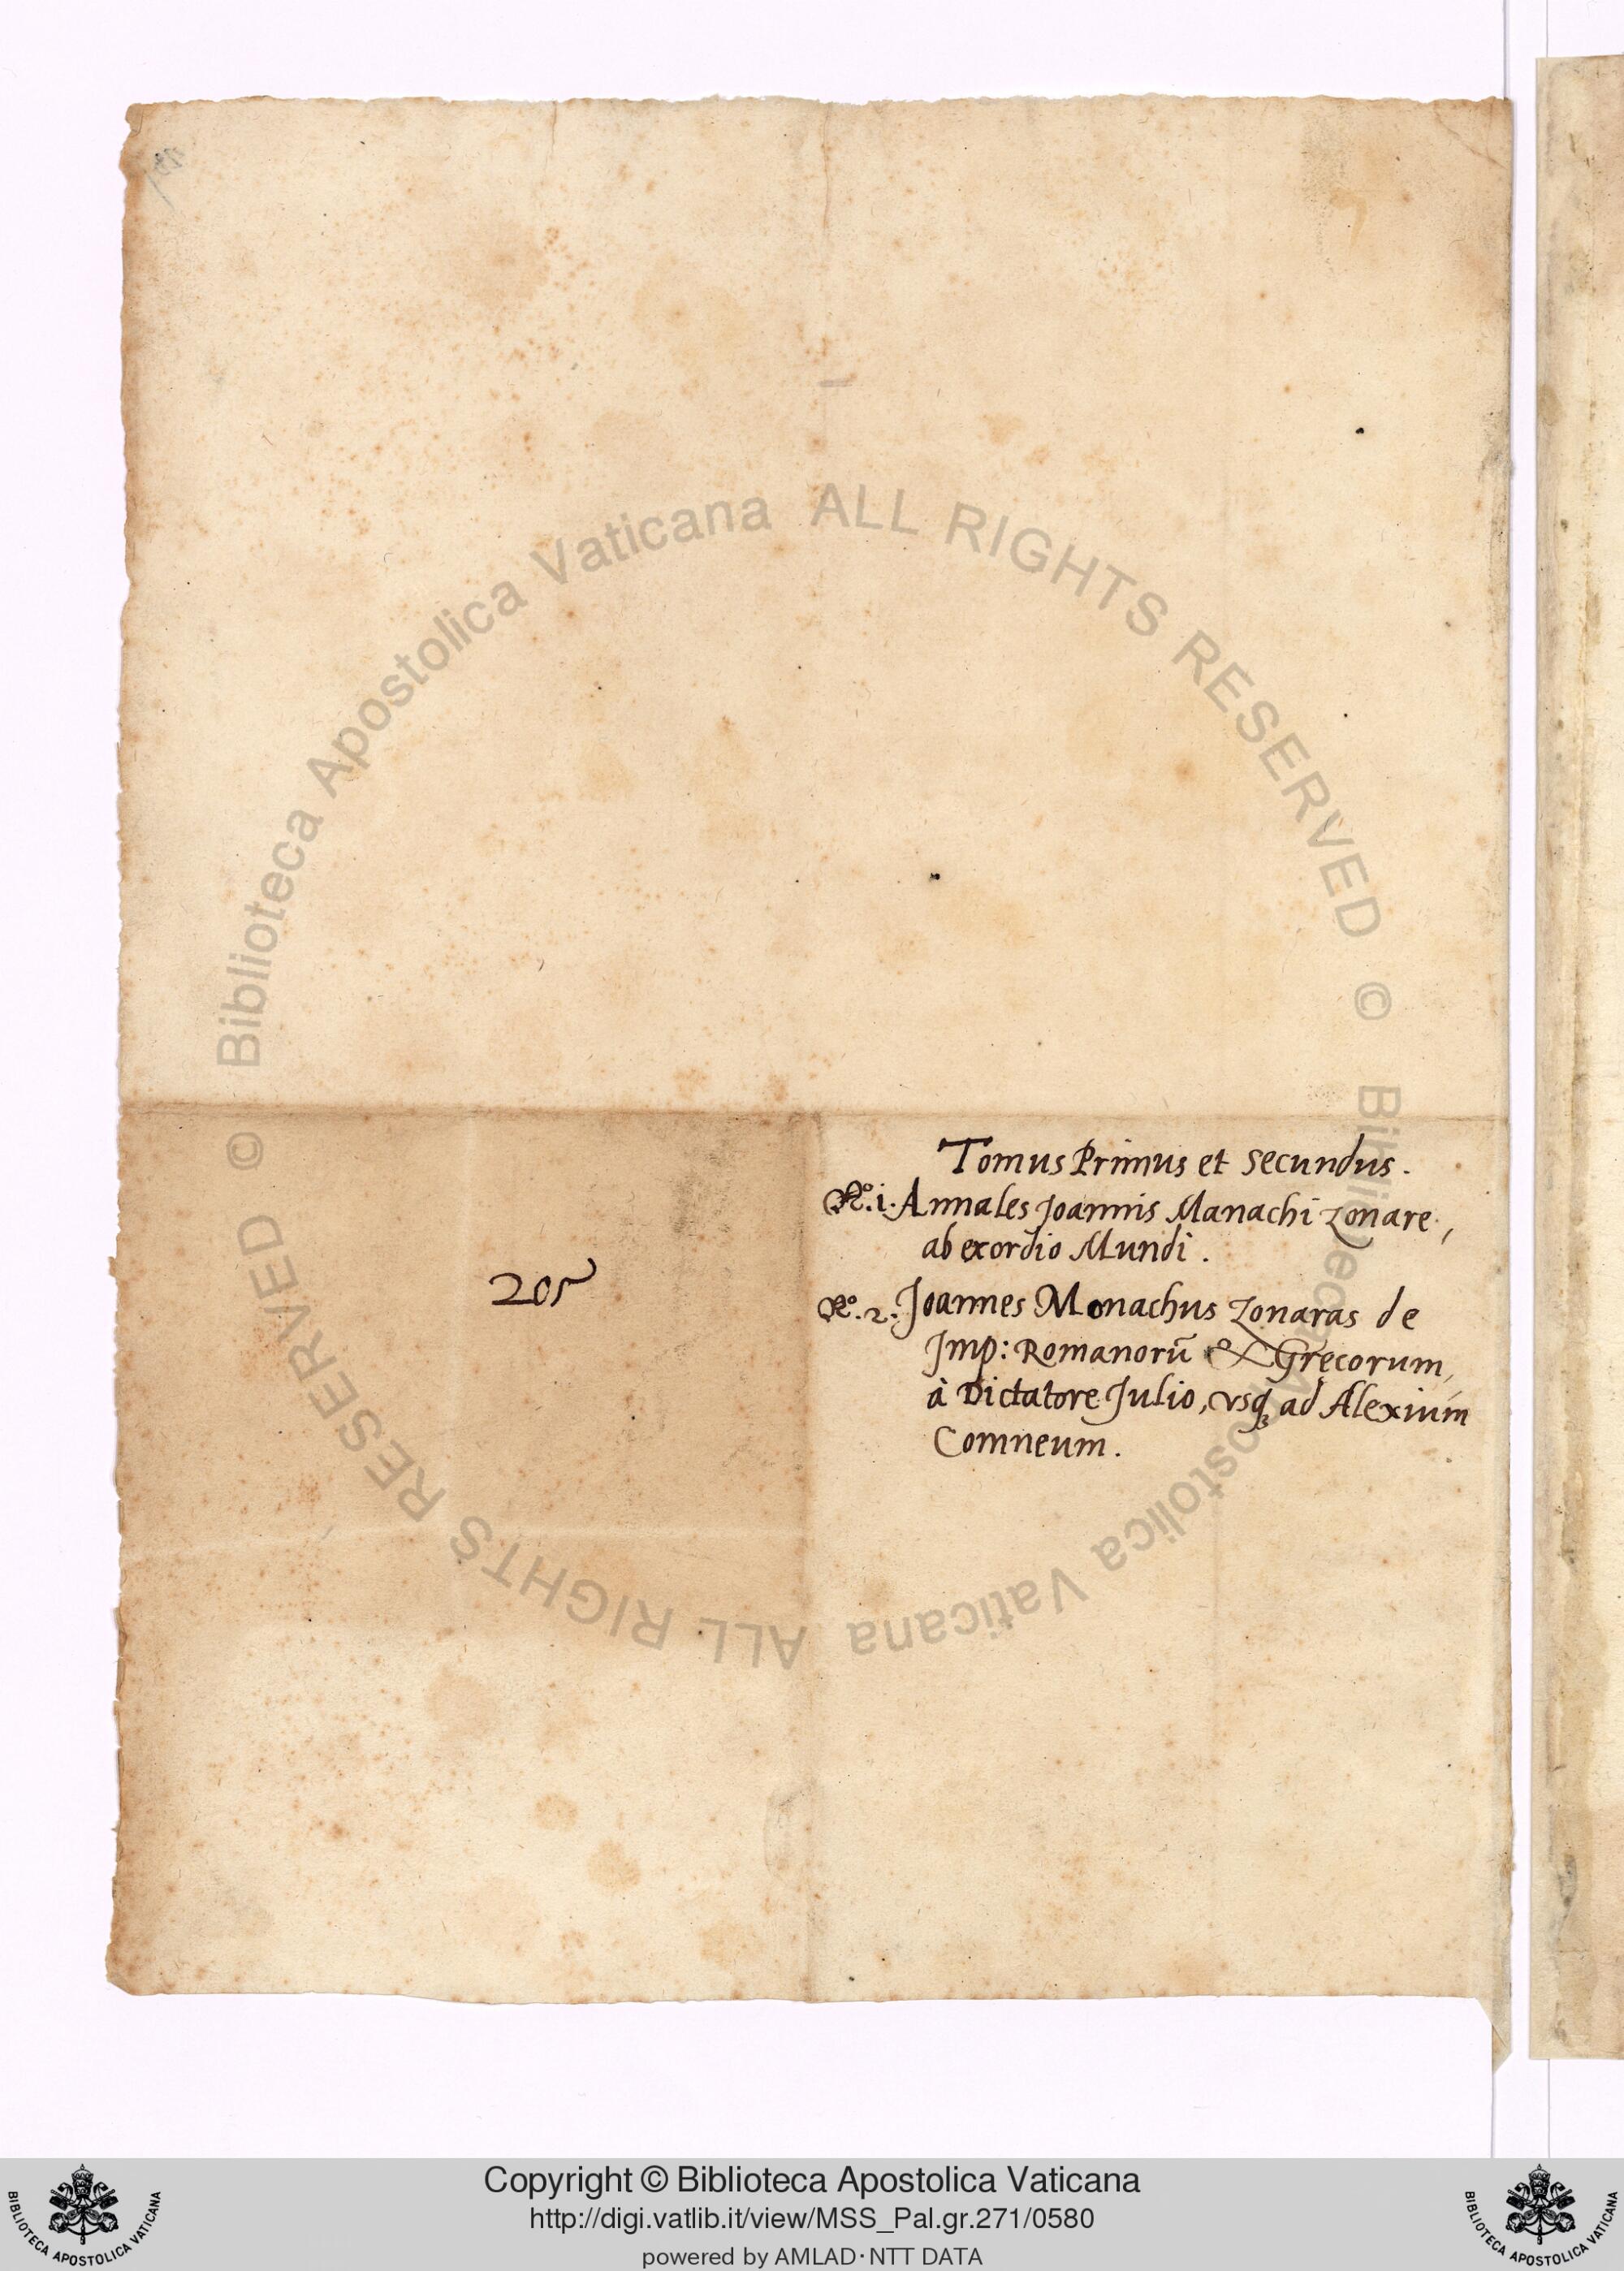 Tomus Primus et Secundus.
Nº. i. Annales Joannis Manachi Zonare,
ab exordio Mundi.
205
Nº. 2. Joannes Monachus Zonaras de
Jmp: Romanorũ & Gręcorum,
à Dictatore Julio, vsq́ ad Alexium
Comneum.
© Biblioteca Apostolica Vaticana ALL RIGHTS RESERVED
© Biblioteca Apostolica Vaticana ALL RIGHTS RESERVED
Copyright © Biblioteca Apostolica Vaticana
http://digi.vatlib.it/view/MSS_Pal.gr.271/0580
powered by AMLAD·NTT DATA
BIBLIOTECA APOSTOLICA VATICANA
BIBLIOTECA APOSTOLICA VATICANA